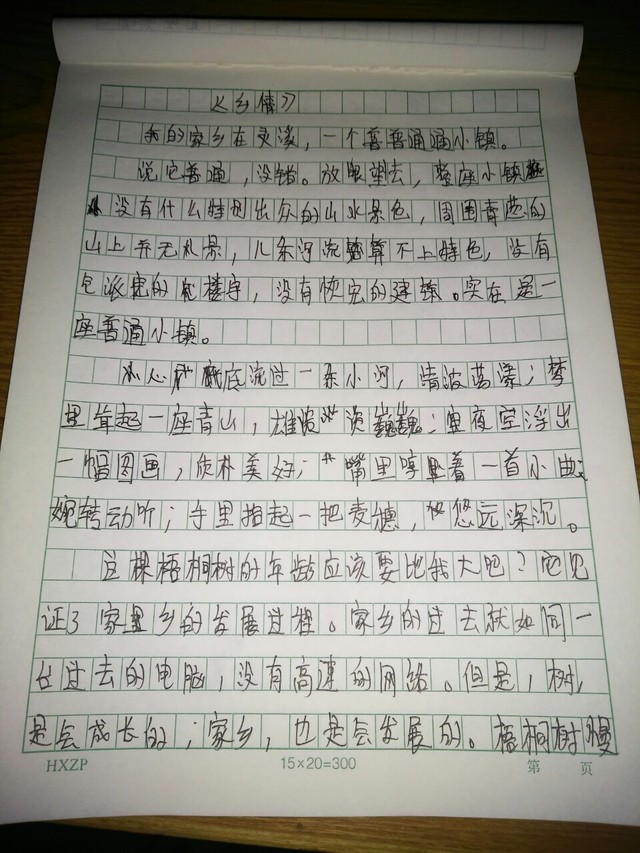 《乡情》
我的家乡在灵溪，一个普普通通小镇。
说它普通，没错。放眼望去，整座小镇
没有什么特别出众的山水景色，周围青葱的
山上并无礼景，几条河流算不上特色，没有
气派的楼宇，没有恢宏的建筑。实在是一
座普通小镇。
心底流过一条小河，清波荡漾；梦
里耸起一座青山，雄姿巍巍；里夜空浮出
一幅图画，质朴美好；嘴里哼着一首小曲，
婉转动听；手里捂起一把麦穗，悠远深沉。
这棵梧桐树的年龄应该要比我大吧？它见
证了家乡的发展过程。家乡的过去就如同一
台过去的电脑，没有高速的网络。但是，树，
是会成长的；家乡，也是会发展的。梧桐树慢
HXZP 15×20=300 第 页